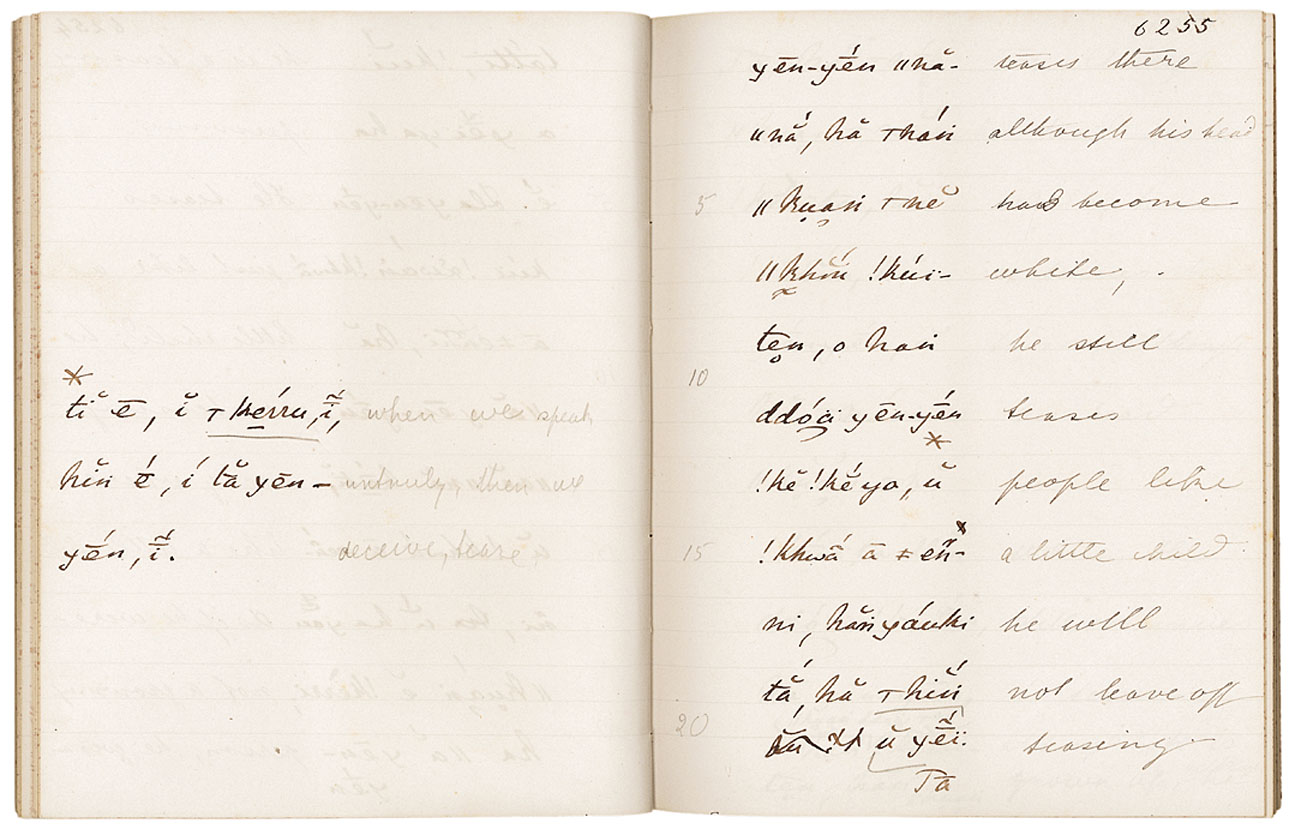 *
tĭ ē, ĭ ⊤ kérru, ĭ, when we speak
hĭn é, í tă yēn- untruly, then we
yén, ĭ. deceive, tease,
6255
yēn-yén ‖nă- teases there
‖nắ, hă ⊤háṅ although his head
5 ‖ku̯aṅ ⊤nĕ had become
‖khóṅ !kúi- white,
ten, o haṅ he still
10
ddóä yēn-yén teases
!kĕ !kéya,, ŭ people like
15 !khwā́ ā ≠eṅ̆- a little child
ni, hăṅ yáuki he will
tắ, hă ⊤híṅ not leave off
20 ŭ yéï. teasing.
Tā